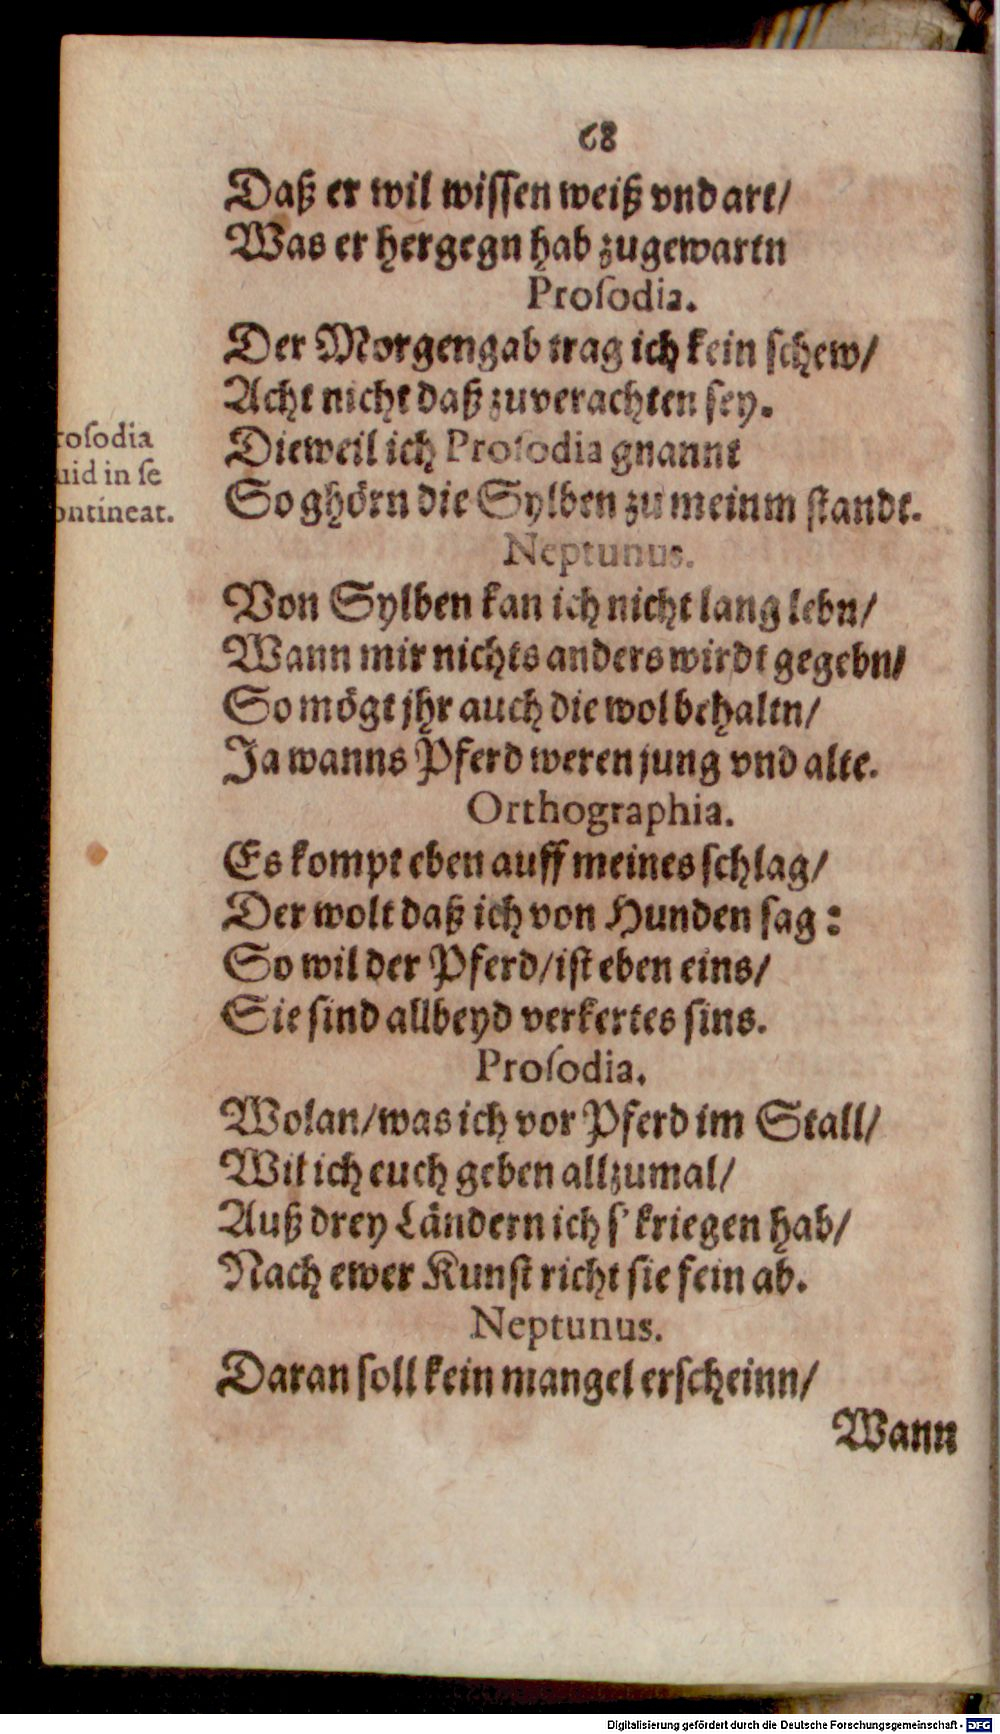 68
Daß er wil wissen weiß vnd art/
Was er hergegn hab zugewartn
Proſodia.
Der Morgengab trag ich kein schew/
Acht nicht daß zuverachten sey.
Dieweil ich Proſodia gnannt
So ghörn die Sylben zu meinm standt.
roſodia
uid in ſe
ontineat.
Neptunus.
Von Sylben kan ich nicht lang lebn/
Wann mir nichts anders wirdt gegebn/
So mögt jhr auch die wol behaltn/
Ja wanns Pferd weren jung vnd alte.
Orthographia.
Es kompt eben auff meines schlag/
Der wolt daß ich von Hunden sag:
So wil der Pferd/ist eben eins/
Sie sind allbeyd verkertes sins.
Proſodia.
Wolan/was ich vor Pferd im Stall/
Wil ich euch geben allzumal/
Auß drey Ländern ich s' kriegen hab/
Nach ewer Kunst richt sie fein ab.
Neptunus.
Daran soll kein mangel erscheinn/
Wann
Digitalisierung gefördert durch die Deutsche Forschungsgemeinschaft - DFG